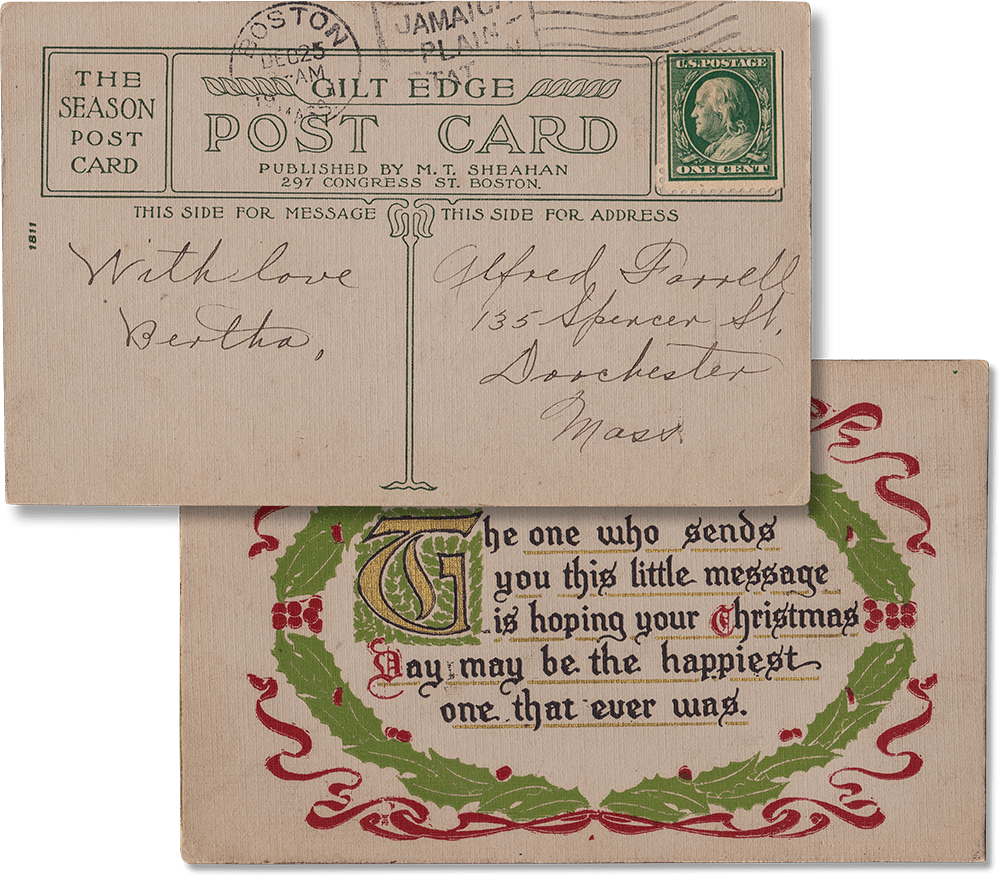 BOSTON
DEC 25
AM
MASS
JAMAICA
PLAIN
STA.
THE
SEASON
POST
CARD
GILT EDGE
POST CARD
PUBLISHED BY M. T. SHEAHAN
297 CONGRESS ST. BOSTON.
U.S. POSTAGE
ONE CENT
THIS SIDE FOR MESSAGE
THIS SIDE FOR ADDRESS
1811
With love
Bertha,
Alfred Farrell
135 Spencer St,
Dorchester
Mass.
The one who sends
you this little message
is hoping your Christmas
Day may be the happiest
one that ever was.